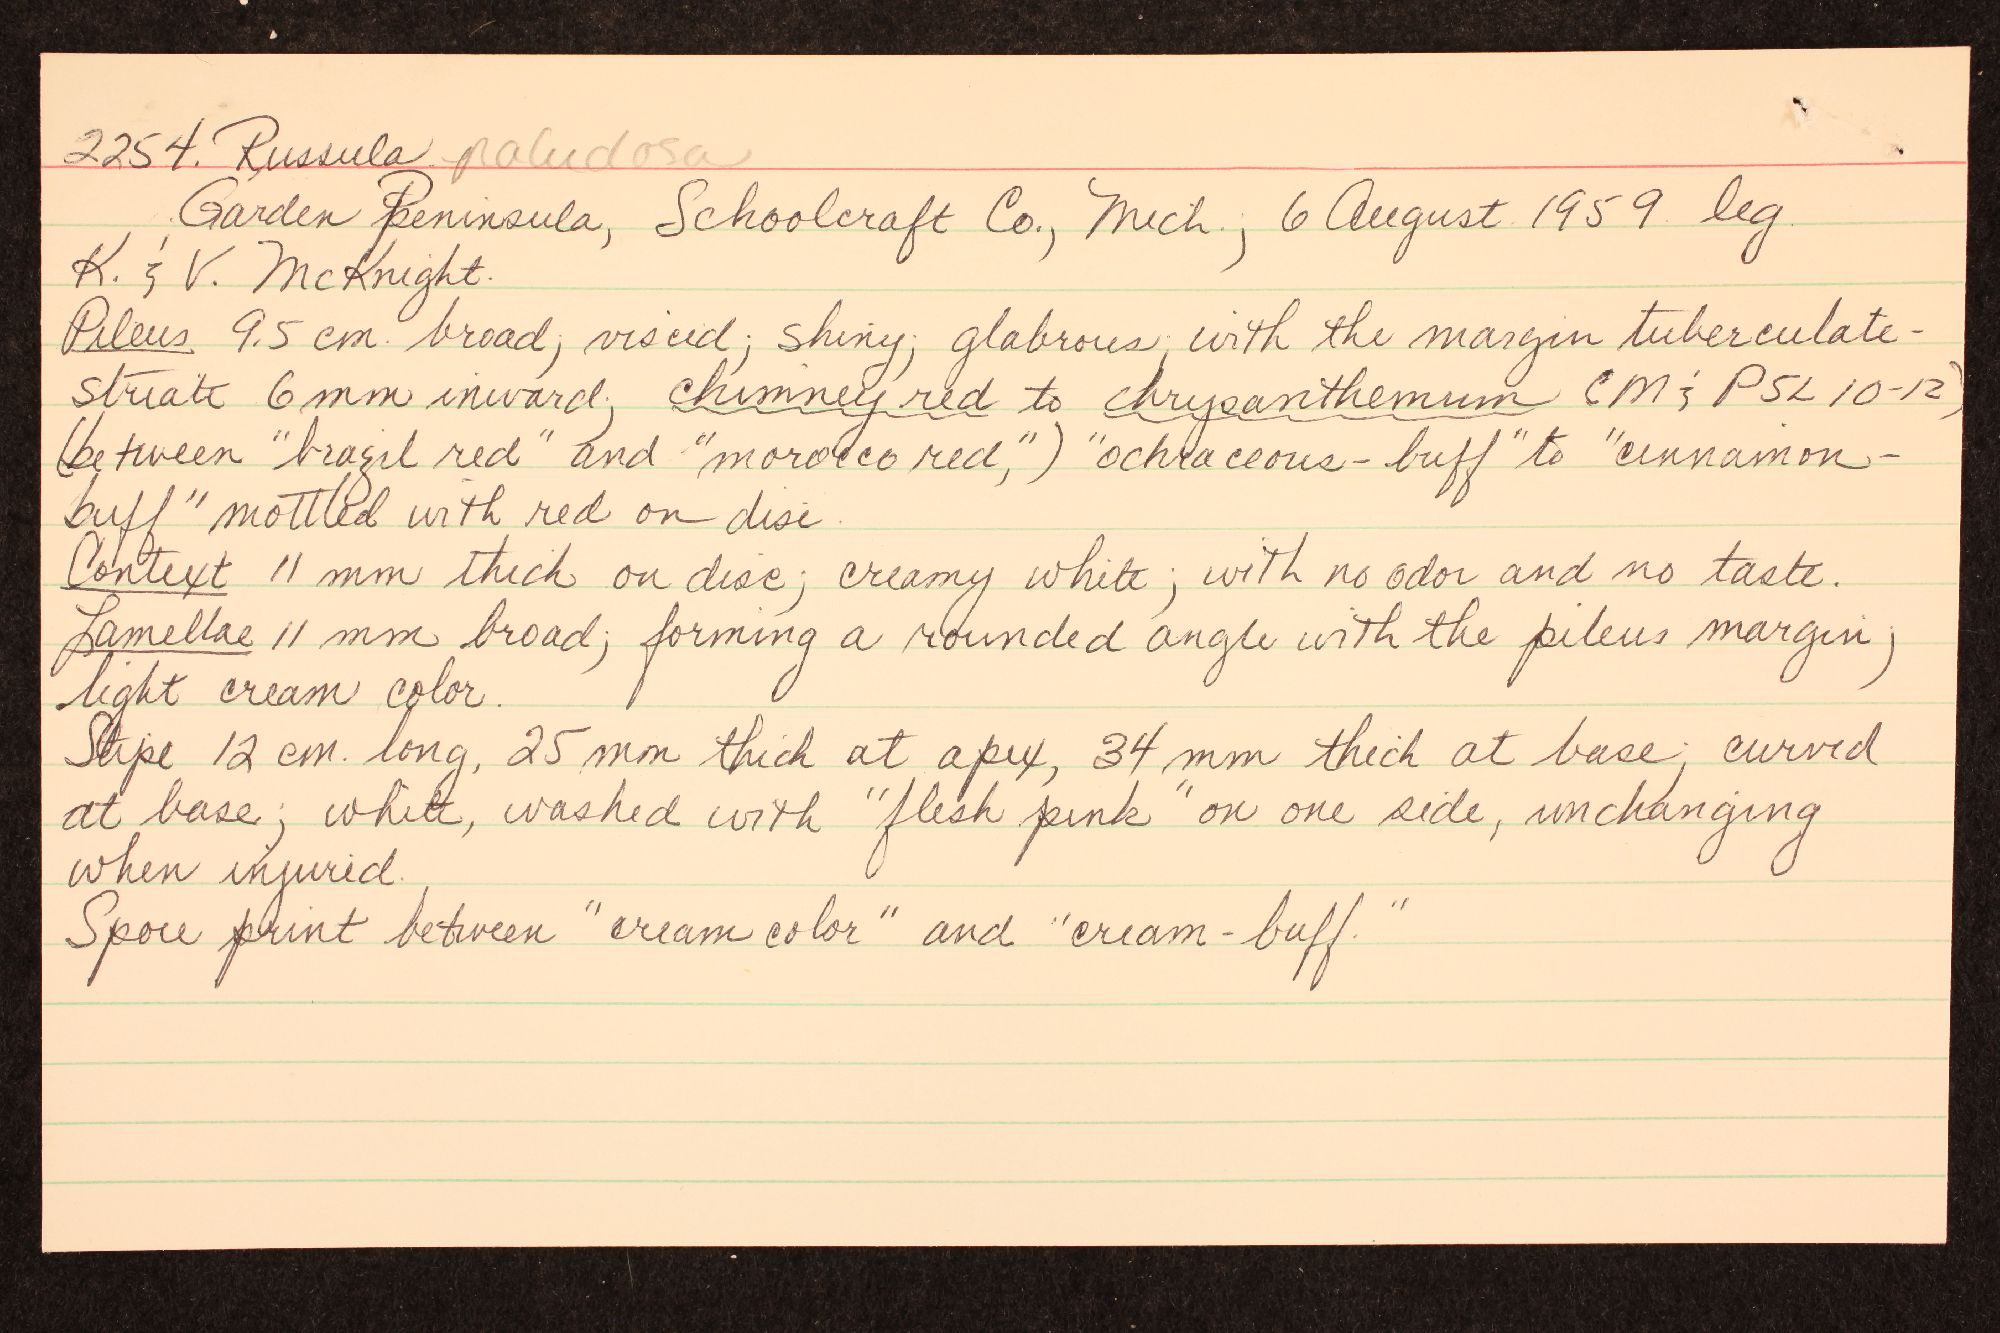 2254. Russula paludosa
Garden Peninsula, Schoolcraft Co., Mich.; 6 August 1959 leg.
K. & V. McKnight.
Pileus 9.5 cm. broad; viscid; shiny; glabrous; with the margin tuberculate-
striate 6 mm inward; chimney red to chrysanthemum (M & P 5L 10-12)
(between "brazil red" and "morocco red,") "ochraceous-buff" to "cinnamon-
buff" mottled with red on disc.
Context 11 mm thick on disc; creamy white; with no odor and no taste.
Lamellae 11 mm broad; forming a rounded angle with the pileus margin;
light cream color.
Stipe 12 cm. long, 25 mm thick at apex, 34 mm thick at base; curved
at base; white, washed with "flesh pink" on one side, unchanging
when injured.
Spore print between "cream color" and "cream-buff."